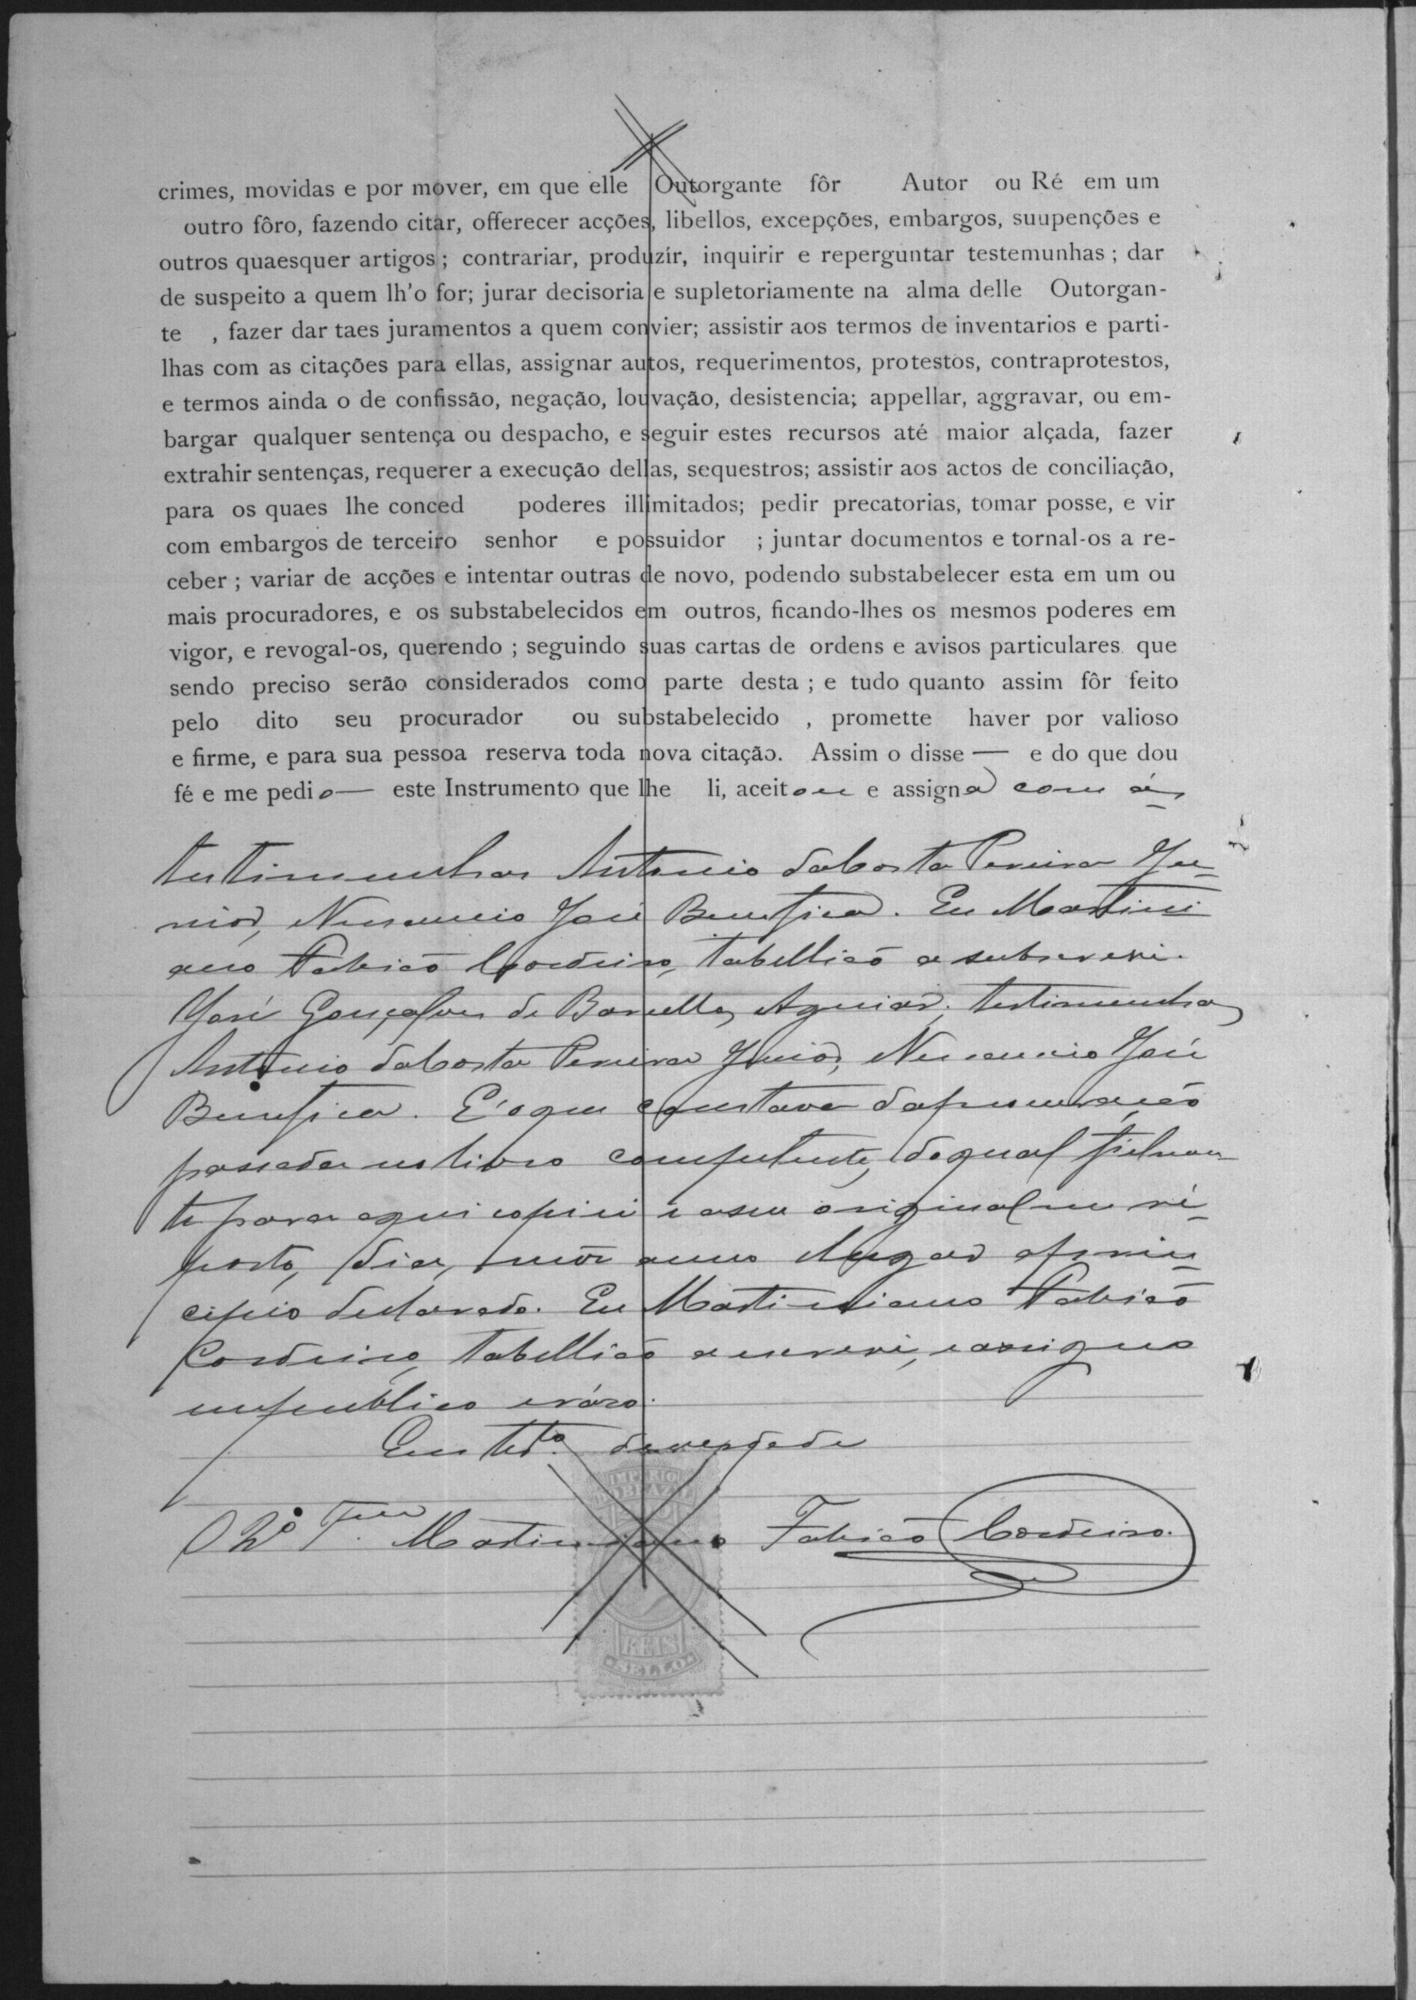 crimes, movidas e por mover, em que elle Outorgante fôr Autor ou Ré em um
outro fôro, fazendo citar, offerecer acções, libellos, excepções, embargos, suupenções e
outros quaesquer artigos; contrariar, produzír, inquirir e reperguntar testemunhas; dar
de suspeito a quem lh'o for; jurar decisoria e supletoriamente na alma delle Outorgan-
te , fazer dar taes juramentos a quem convier; assistir aos termos de inventarios e parti-
lhas com as citações para ellas, assignar autos, requerimentos, protestos, contraprotestos,
e termos ainda o de confissão, negação, louvação, desistencia; appellar, aggravar, ou em-
bargar qualquer sentença ou despacho, e seguir estes recursos até maior alçada, fazer
extrahir sentenças, requerer a execução dellas, sequestros; assistir aos actos de conciliação,
para os quaes lhe conced poderes illimitados; pedir precatorias, tomar posse, e vir
com embargos de terceiro senhor e possuidor ; juntar documentos e tornal-os a re-
ceber; variar de acções e intentar outras de novo, podendo substabelecer esta em um ou
mais procuradores, e os substabelecidos em outros, ficando-lhes os mesmos poderes em
vigor, e revogal-os, querendo; seguindo suas cartas de ordens e avisos particulares que
sendo preciso serão considerados como parte desta; e tudo quanto assim fôr feito
pelo dito seu procurador ou substabelecido , promette haver por valioso
e firme, e para sua pessoa reserva toda nova citação. Assim o disse — e do que dou
fé e me pedio — este Instrumento que lhe li, aceitou e assigna com as
testimunhas Antonio da Costa Pereira Ju-
nior, José Benefica. Eu Martini
ano Fabião Cordeiro, tabellião a subscrevi.
José Gonçalves de Barcellos Aguiar; testimunhas
Antonio da Costa Pereira Junior, José
Benefica. E' o que constava da procuração
passada no livro competente, do qual fielmen
te para aqui copiei e a seu original me re-
porto, dia, mez anno e lugar a prin-
cipio declarado. Eu Martiniano Fabião
Cordeiro, tabellião a escrevi, e assigno
em publico e razo.
Em tedº da verdade
O 2º Tam Martiniano Fabião Cordeiro.
IMPERIO
DO BRAZIL
REIS
SELLO